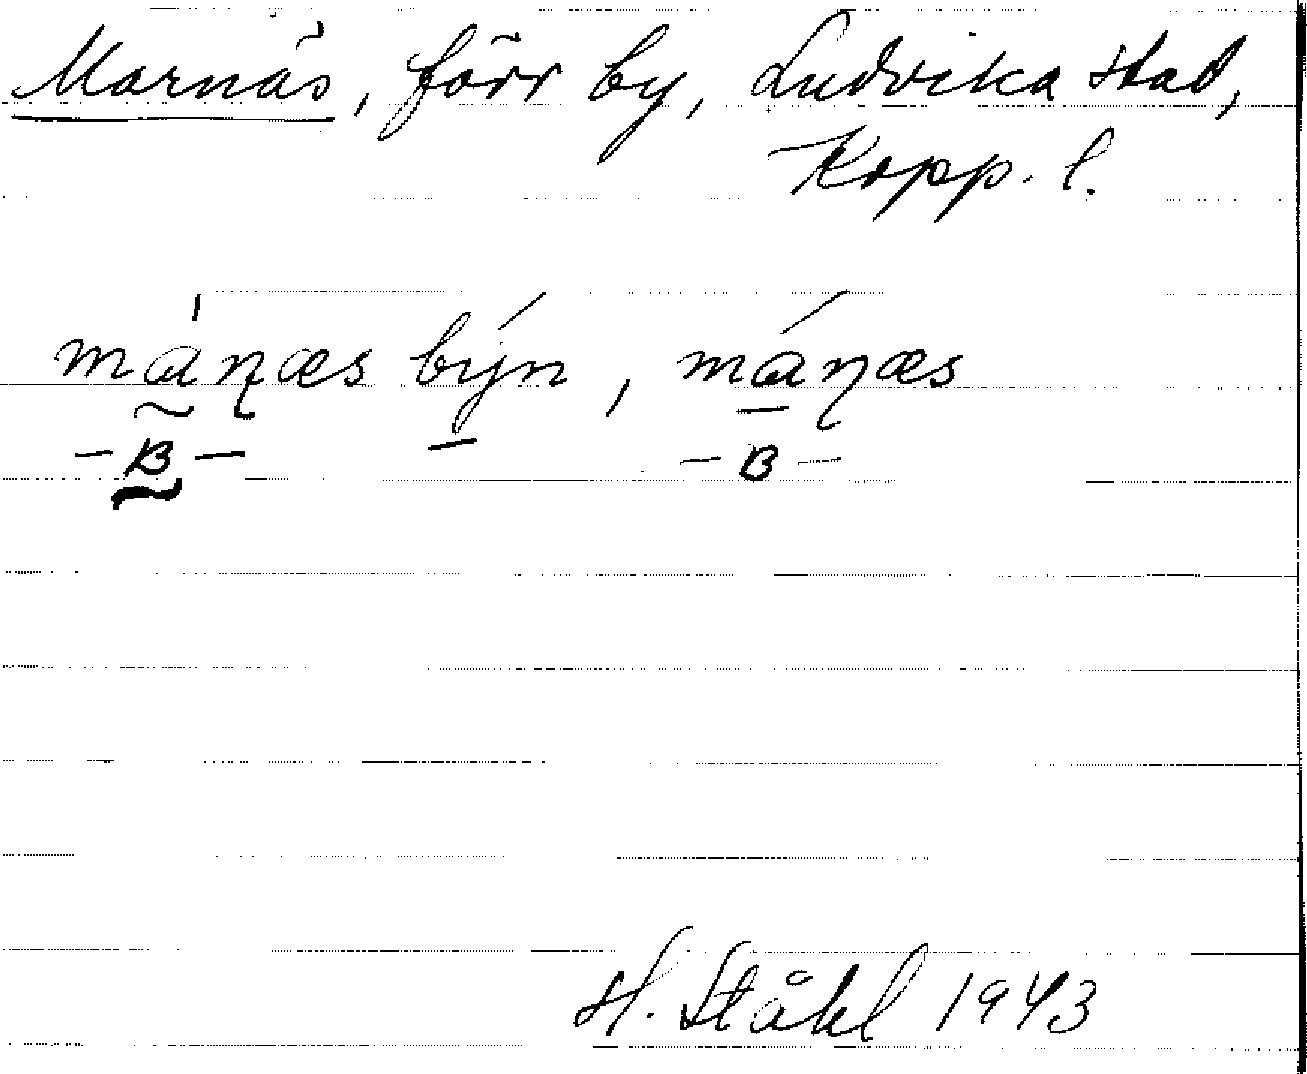 Marnäs, förr by, Ludvika stad,
Kopp. l.
mánæs býn, mánæs
-B- -B-
H. Ståhl 1943